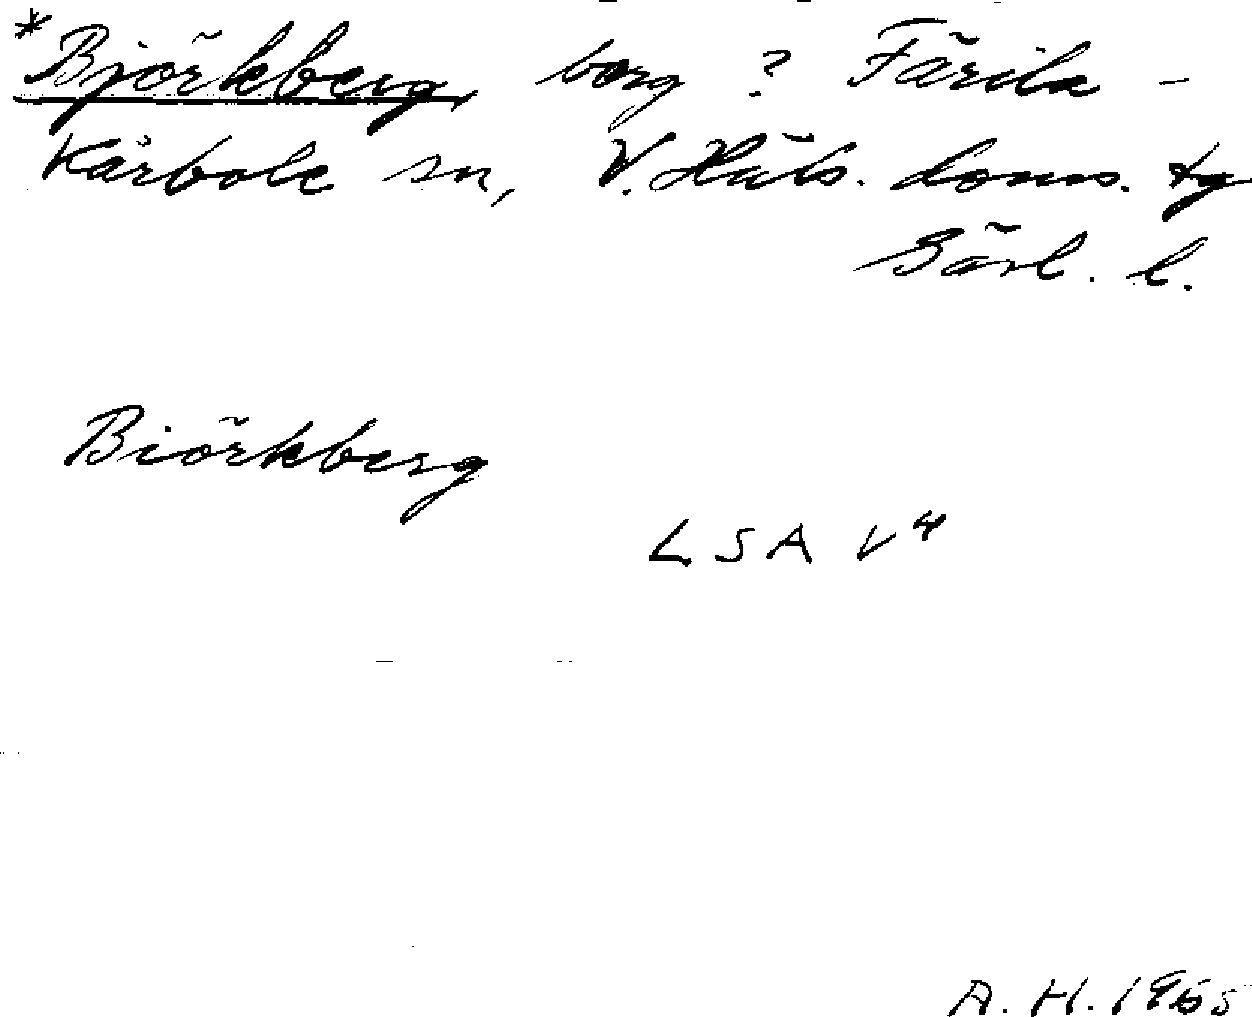 *Björkberg, berg ? Färila -
Kårböle sn, V. Häls. doms. tg
Gävl. l.
Biörkberg
LSA V4
A. H. 1965